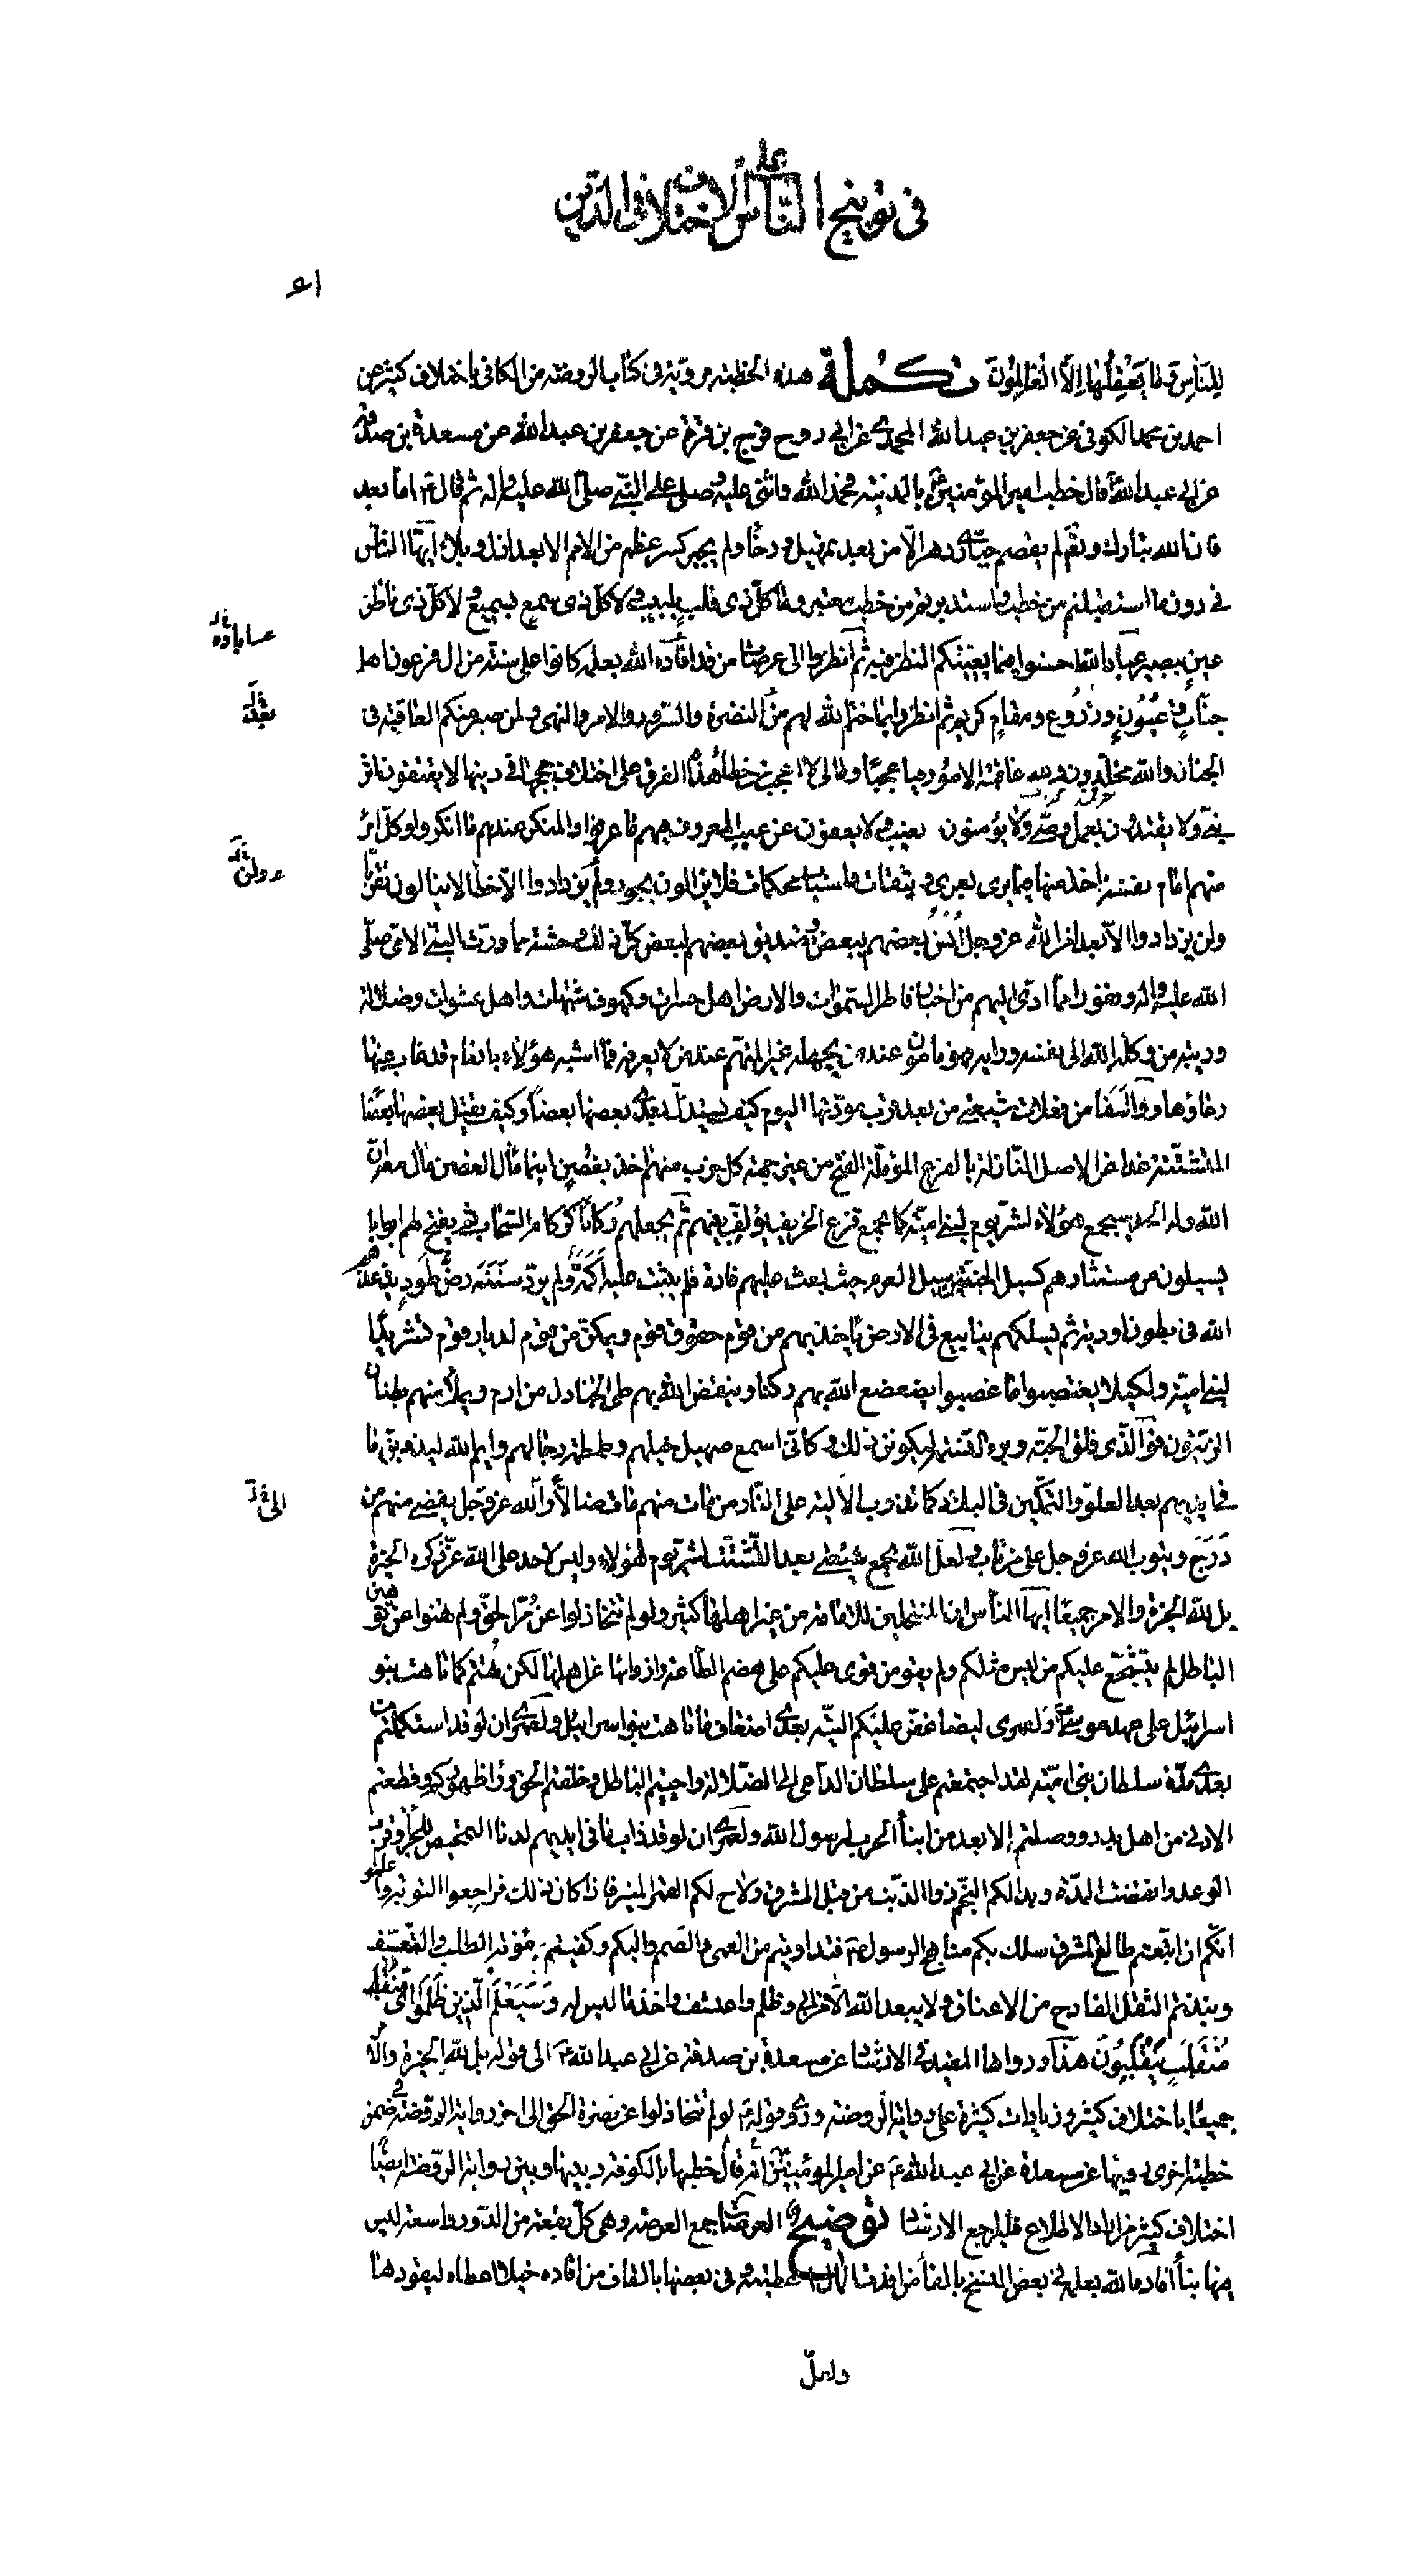 في توبيخ الناس على الاختلاف في الدين
للناس وما يعقلها إلا العالمون تكملة هذه الخطبة مروية في كتاب الروضة من الكافي باختلاف كثير عن
احمد بن محمد الكوفي عن جعفر بن عبد الله المحمدي عن أبي روح فرج بن قرة عن جعفر بن عبد الله عن مسعدة بن صدقة
عن أبي عبد الله قال خطب امير المؤمنين بالمدينة فحمد الله واثنى عليه وصلى على النبي صلى الله عليه واله ثم قال اما بعد
فان الله تبارك وتعالى لم يقصم جباري دهر الا من بعد تمهيل ورخاء ولم يجبر كسر عظم من الامم الا بعد ازل وبلاء ايها الناس
في دون ما استقبلتم من خطب واستدبرتم من خطب معتبر وما كل ذي قلب بلبيب ولا كل ذي سمع بسميع ولا كل ذي ناظر
عين ببصير عباد الله احسنوا فيما يعنيكم النظر فيه ثم انظروا الى عرصات من قد اقاده الله بعلمه كانوا على سنة من ال فرعون اهل
جنات وعيون وزروع ومقام كريم ثم انظروا بما ختم الله لهم من النضرة والسرور والامر والنهي ولمن صبر منكم العاقبة في
الجنان والله مخلدون ولله عاقبة الامور فيا عجبا ومالي لا اعجب من خطاء هذه الفرق على اختلاف حججها في دينها لا يقتفون اثر
نبي ولا يقتدون بعمل وصي ولا يؤمنون بغيب ولا يعفون عن عيب المعروف فيهم ما عرفوا والمنكر عندهم ما انكروا وكل امرء
منهم امام نفسه اخذ منها فيما يرى بعرى وثيقات واسباب محكمات فلا يزالون بجور ولم يزدادوا الا خطأ لا ينالون تقربا
ولن يزدادوا الا بعدا من الله عز وجل انس بعضهم ببعض وتصديق بعضهم لبعض كل ذلك وحشة مما ورث النبي الامي صلى
الله عليه واله ونفورا مما ادى اليهم من اخبار فاطر السموات والارض اهل حسرات وكهوف شبهات واهل عشوات وضلالة
وريبة من وكله الله الى نفسه ورايه فهو مامون عند من يجهله غير المتهم عند من لا يعرفه فما اشبه هؤلاء بانعام قد غاب عنها
رعاؤها ووا اسفا من فعلات شيعتي من بعد قرب مودتها اليوم كيف يستذل بعدي بعضها بعضا وكيف يقتل بعضها بعضا
المتشتتة غدا عن الاصل النازلة بالفرع المؤملة الفتح من غير جهته كل حزب منهم اخذ بغصن اينما مال الغصن مال معه ان
الله وله الحمد سيجمع هؤلاء لشر يوم لبني امية كما يجمع قزع الخريف يؤلف بينهم ثم يجعلهم ركاما كركام السحاب ثم يفتح لهم ابوابا
يسيلون من مستثارهم كسيل الجنتين سيل العرم حيث بعث عليهم فارة فلم يثبت عليه اكمة ولم يرد سننه رض طود يذعذعهم
الله في بطون اودية ثم يسلكهم ينابيع في الارض ياخذ بهم من قوم حقوق قوم ويمكن من قوم لديار قوم تشريدا
لبني امية ولكيلا يغتصبوا ما غصبوا يضعضع الله بهم ركنا وينقض الله بهم طي الجنادل من ارم ويملأ منهم بطنان
الزيتون فو الذي فلق الحبة وبرء النسمة ليكونن ذلك وكاني اسمع صهيل خيلهم وطمطمة رجالهم وايم الله ليذوبن ما
في ايديهم بعد العلو والتمكين في البلاد كما تذوب الالية على النار من مات منهم مات ضالا والى الله عز وجل يفضى منهم من
درج ويتوب الله عز وجل على من تاب ولعل الله يجمع شيعتي بعد التشتت لشر يوم لهؤلاء وليس لاحد على الله عز ذكره الخيرة
بل لله الخيرة والامر جميعا ايها الناس ان المنتحلين للامامة من غير اهلها كثير ولو لم تتخاذلوا عن مر الحق ولم تهنوا عن توهين
الباطل لم يتشجع عليكم من ليس مثلكم ولم يقو من قوى عليكم على هضم الطاعة وازوائها عن اهلها لكن تهتم كما تاهت بنو
اسرائيل على عهد موسى ولعمري ليضاعفن عليكم التيه بعدي اضعاف ما تاهت بنو اسرائيل ولعمري ان لو قد استكملتم من
بعدي مدة سلطان بني امية لقد اجتمعتم على سلطان الداعي الى الضلالة واحييتم الباطل وخلفتم الحق وراء ظهوركم وقطعتم
الادنى من اهل بدر ووصلتم الابعد من ابناء الحرب لرسول الله ولعمري ان لو قد ذاب ما في ايديهم لدنا التمحيص للجزاء وقرب
الوعد وانقضت المدة وبدا لكم النجم ذو الذنب من قبل المشرق ولاح لكم القمر المنير فاذا كان ذلك فراجعوا التوبة واعلموا
انكم ان اتبعتم طالع المشرق سلك بكم مناهج الرسول فتداويتم من العمى والصم والبكم وكفيتم مؤنة الطلب والتعسف
ونبذتم الثقل الفادح من الاعناق ولا يبعد الله الا من ابى وظلم واعتسف واخذ ما ليس له وسيعلم الذين ظلموا اي منقلب
ينقلبون هذا ورواها المفيد في الارشاد عن مسعدة بن صدقة عن ابي عبد الله الى قوله بل لله الخيرة والامر
جميعا باختلاف كثير وزيادات كثيرة على رواية الروضة وروى قوله لو لم تتخاذلوا عن نصرة الحق الى اخر رواية الروضة في ضمن
خطبة اخرى رويها عن مسعدة عن ابي عبد الله عن امير المؤمنين انه قال خطبها بالكوفة وبينها وبين رواية الروضة ايضا
اختلاف كثير من اراد الاطلاع فليراجع الارشاد توضيح العرصات جمع العرصة وهي كل بقعة من الدور واسعة ليس
فيها بناء اقاده الله بعلمه في بعض النسخ بالفاء من افدت المال اعطيته وفي بعضها بالقاف من اقاده خيلا اعطاه ليقودها
ولعل